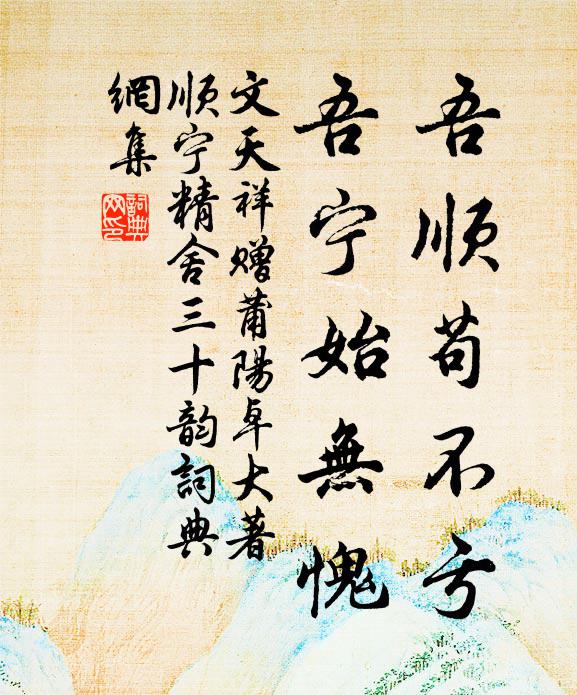 吾順苟不亏
吾宁始無愧
文天祥赠莆陽卓大著
順宁精舍三十韵詞典
網集
詞典
网印